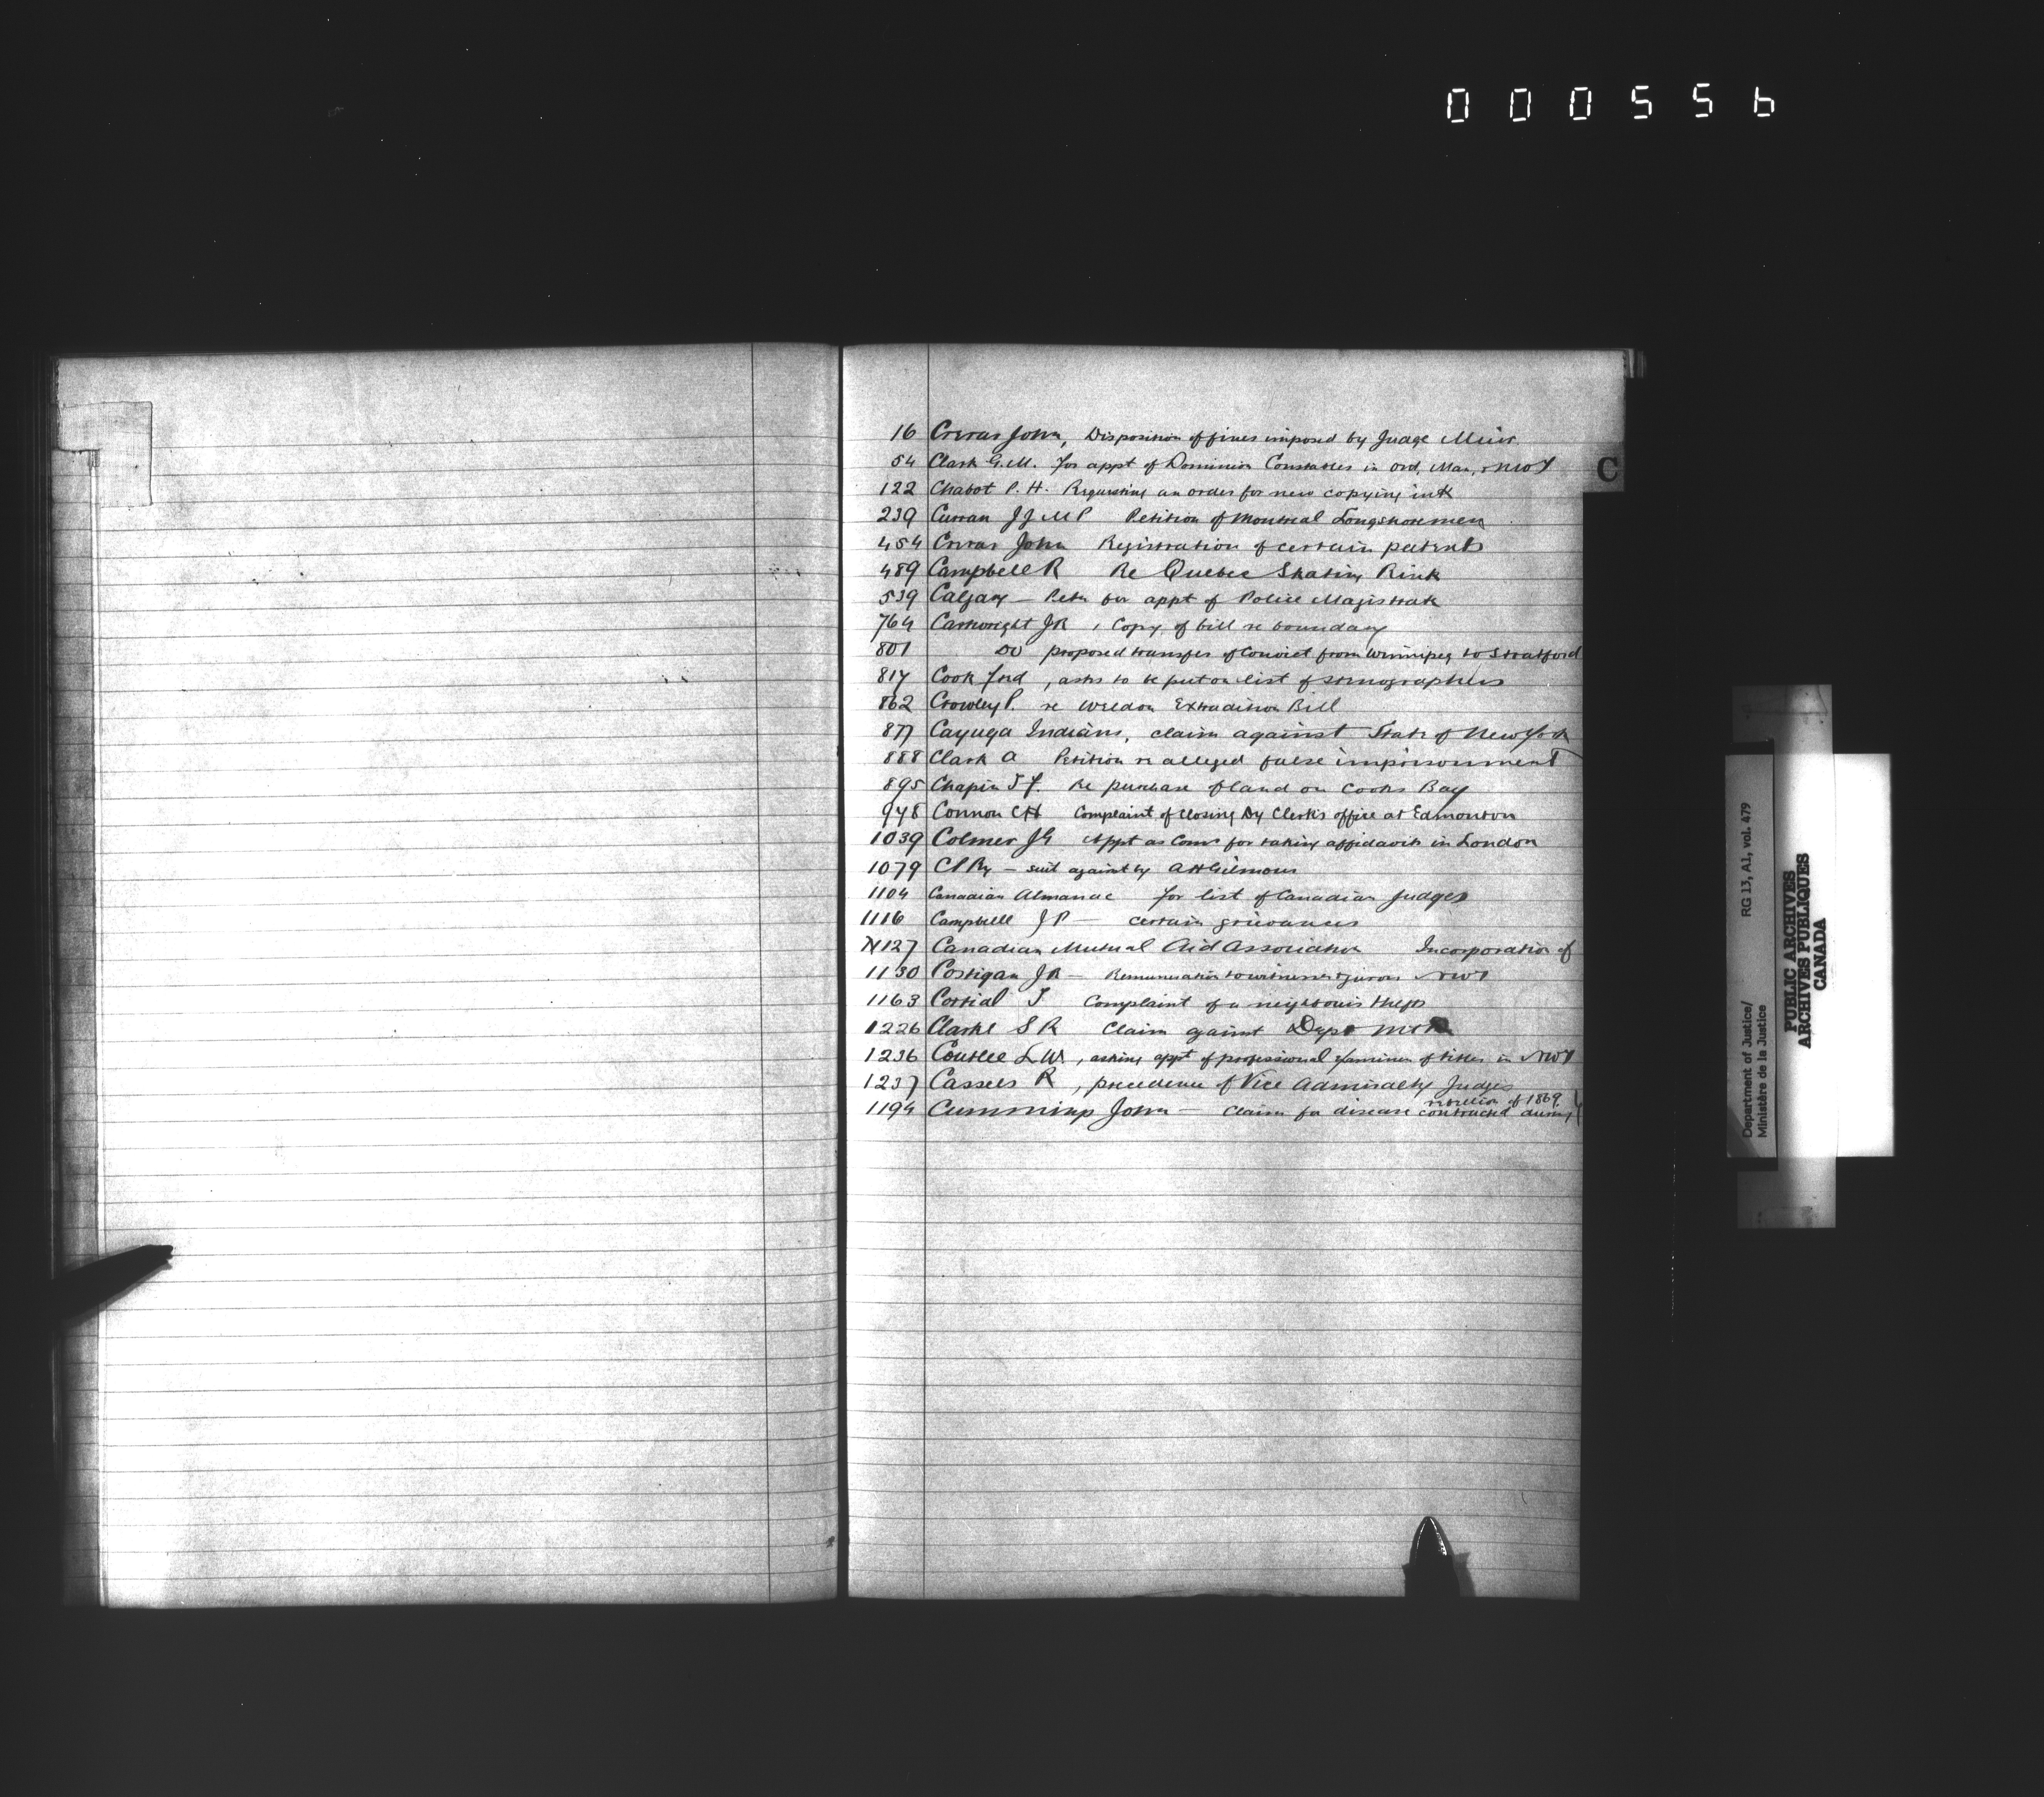 000556
C
16 Crerar John, Disposition of fines imposed by Judge Muir
54 Clark G.M. for appt of Dominion Constables in Ont, Man, & NWT
122 Chabot P. H. Requesting an order for new copying ink
239 Curran J J MP Petition of Montreal Longshoremen
454 Crerar John Registration of certain patents
489 Campbell R Re Quebec Skating Rink
539 Calgary — Petn for appt of Police Magistrate
764 Cartwright JR, Copy of bill re boundary
801 Do proposed transfer of Convict from Winnipeg to Stratford
817 Cook Fred, asks to be put on list of stenographers
862 Crowley P. re Weldon Extradition Bill
877 Cayuga Indians, claim against State of New York
888 Clark A Petition re alleged false imprisonment
895 Chapin J F. Re purchase of land on Cooks Bay
948 Connon CH Complaint of closing Dy Clerk's office at Edmonton
1039 Colmer JG Appt as Comr for taking affidavits in London
1079 CPRy — suit against by AH Gilmour
1104 Canadian Almanac for list of Canadian Judges
1116 Campbell J P — certain grievances
1127 Canadian Mutual Aid Association Incorporation of
1130 Costigan JR — Remuneration to witnesses & jurors NWT
1163 Corrial J Complaint of a neighbour's thefts
1226 Clarke S R Claim gainst Dept
1236 Coutlee L W., asking appt of professional examiner of titles in NWT
1237 Cassels R, precedence of Vice Admiralty Judges
1194 Cummings John — Claim for disease contracted during rebellion of 1869.
Department of Justice/ RG 13, A1, vol. 479
Ministère de la Justice
PUBLIC ARCHIVES
ARCHIVES PUBLIQUES
CANADA